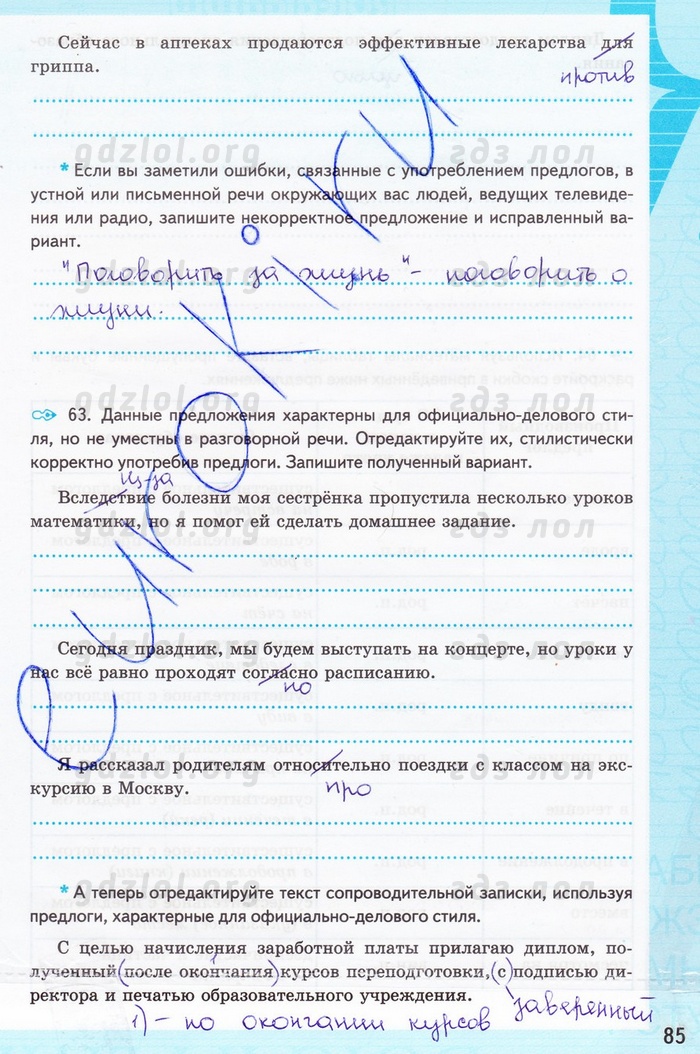 Сейчас в аптеках продаются эффективные лекарства для
гриппа.
против
gdzlol.org гдз лол
* Если вы заметили ошибки, связанные с употреблением предлогов, в
устной или письменной речи окружающих вас людей, ведущих телевиде-
ния или радио, запишите некорректное предложение и исправленный ва-
риант.
"Поговорить за жизнь" - поговорить о
жизни.
gdzlol.org гдз лол
gdzlol.org гдз лол
63. Данные предложения характерны для официально-делового сти-
ля, но не уместны в разговорной речи. Отредактируйте их, стилистически
корректно употребив предлоги. Запишите полученный вариант.
Из-за
Вследствие болезни моя сестрёнка пропустила несколько уроков
математики, но я помог ей сделать домашнее задание.
gdzlol.org гдз лол
Сегодня праздник, мы будем выступать на концерте, но уроки у
gdzlol.org гдз лол
нас всё равно проходят согласно расписанию.
по
Я рассказал родителям относительно поездки с классом на экс-
gdzlol.org гдз лол
курсию в Москву.
про
* А теперь отредактируйте текст сопроводительной записки, используя
gdzlol.org гдз лол
предлоги, характерные для официально-делового стиля.
С целью начисления заработной платы прилагаю диплом, по-
1
лученный (после окончания) курсов переподготовки, (с) подписью ди-
ректора и печатью образовательного учреждения.
заверенный
1) - по окончании курсов
85